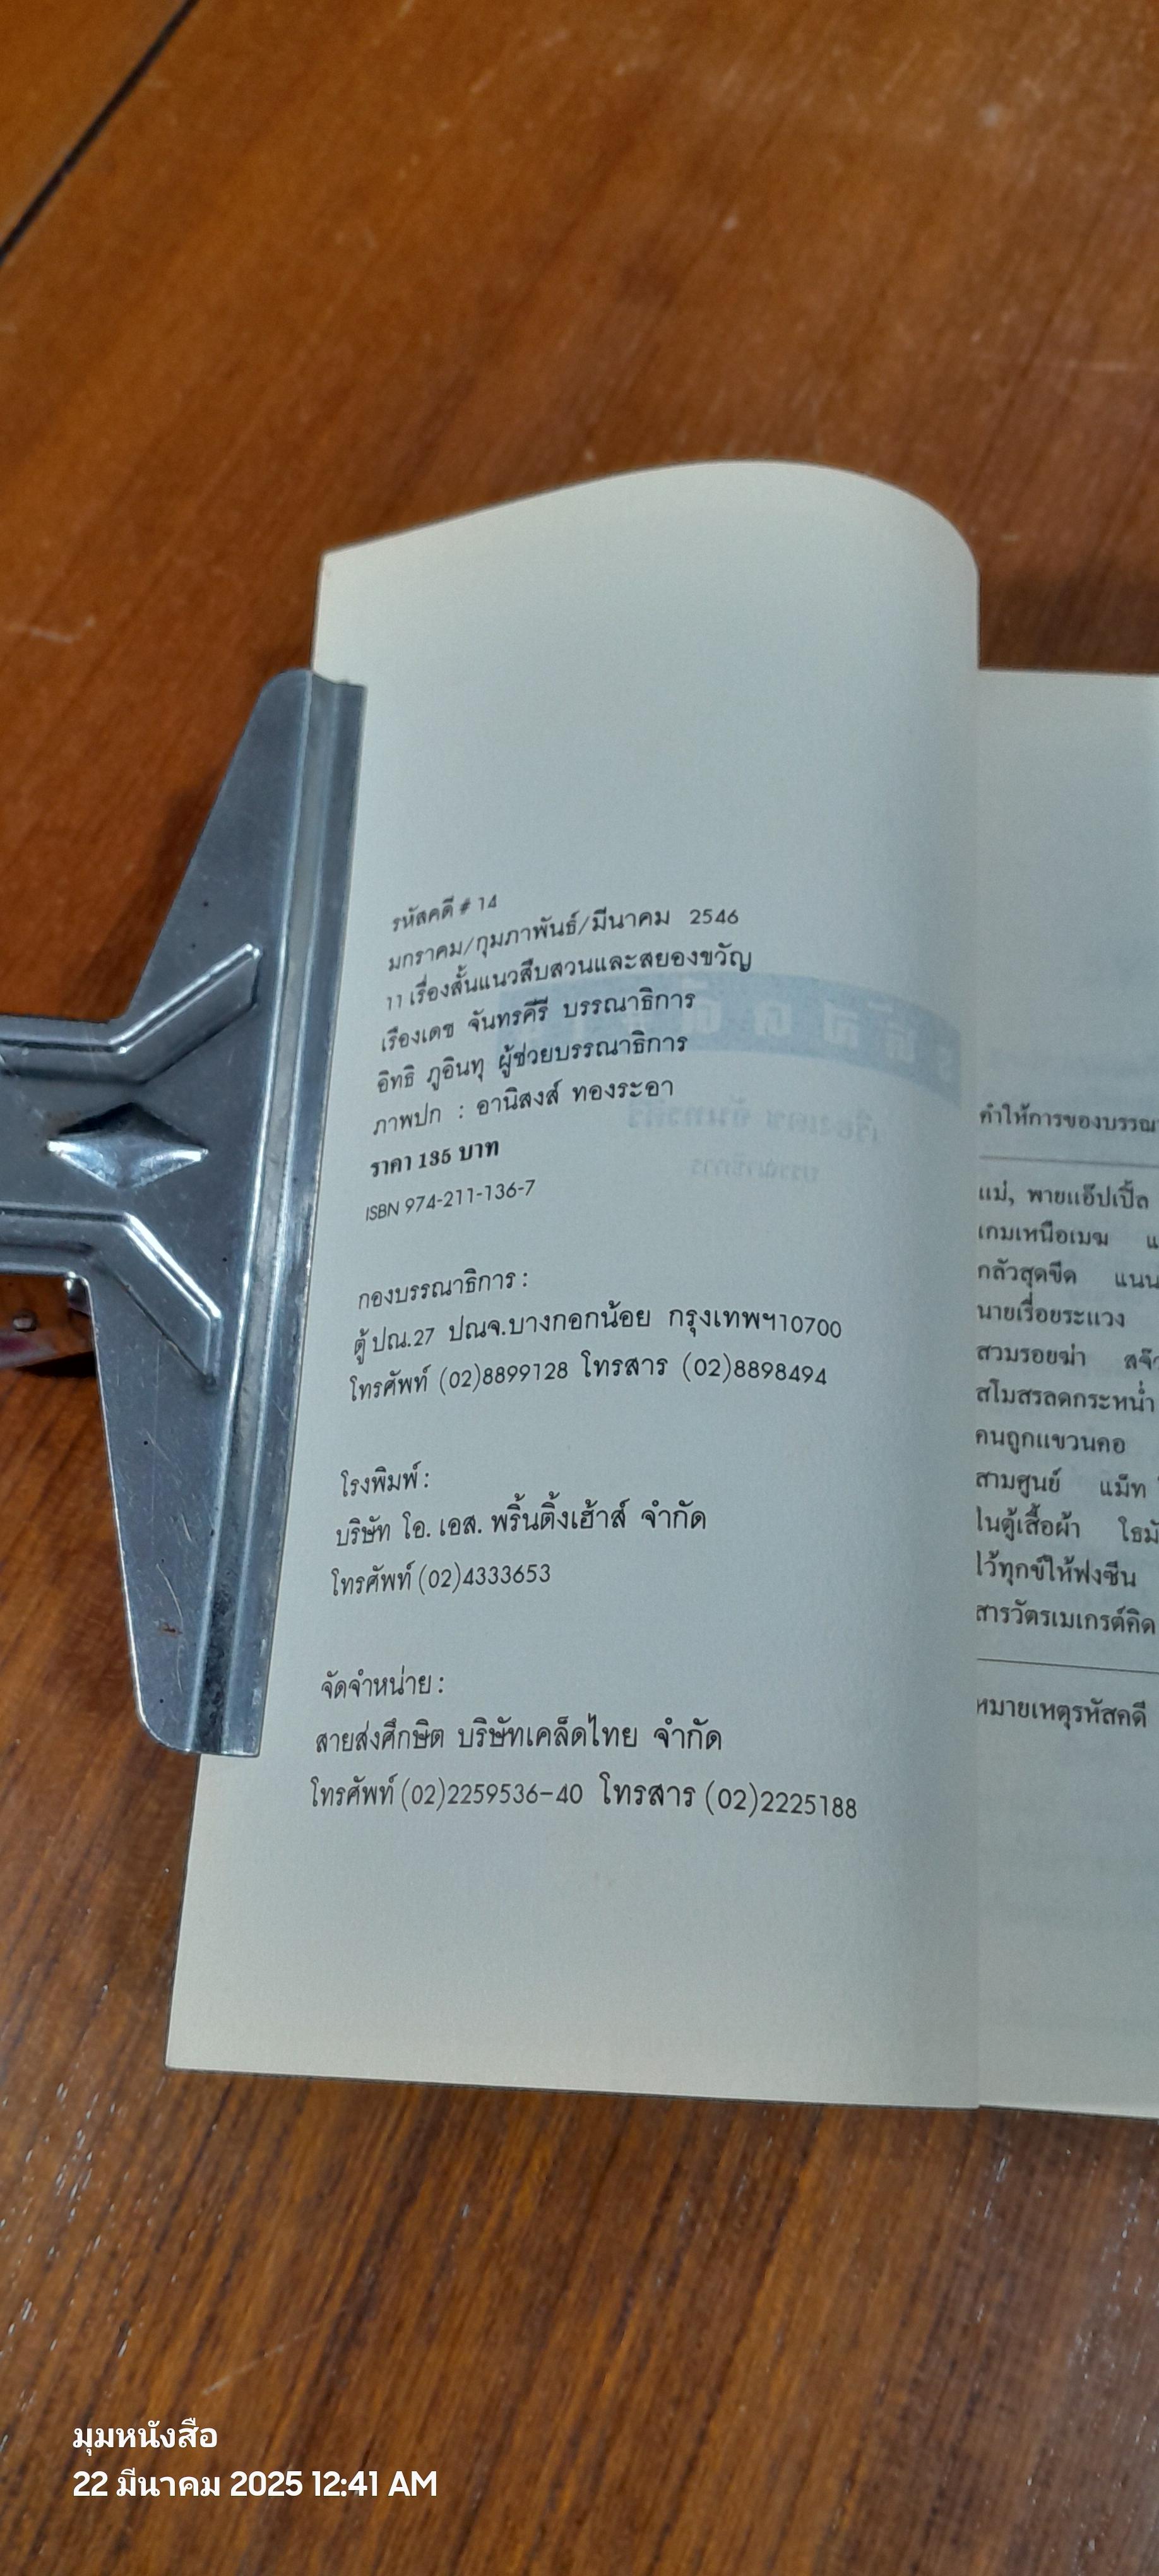 รหัสคดี # 14
มกราคม/กุมภาพันธ์/มีนาคม 2546
11 เรื่องสั้นแนวสืบสวนและสยองขวัญ
เรืองเดช จันทรคีรี บรรณาธิการ
อิทธิ ภูอินทุ ผู้ช่วยบรรณาธิการ
ภาพปก : อานิสงส์ ทองระอา
ราคา 135 บาท
ISBN 974-211-136-7
กองบรรณาธิการ :
ตู้ ปณ.27 ปณจ.บางกอกน้อย กรุงเทพฯ10700
โทรศัพท์ (02)8899128 โทรสาร (02)8898494
โรงพิมพ์ :
บริษัท โอ. เอส. พริ้นติ้งเฮ้าส์ จำกัด
โทรศัพท์ (02)4333653
จัดจำหน่าย :
สายส่งศึกษิต บริษัทเคล็ดไทย จำกัด
โทรศัพท์ (02)2259536-40 โทรสาร (02)2225188
คำให้การของบรรณ
แม่, พายแอ๊ปเปิ้ล
เกมเหนือเมฆ แ
กลัวสุดขีด แนน
นายเรื่อยระแวง
สวมรอยฆ่า สจ๊
สโมสรลดกระหน่ำ
คนถูกแขวนคอ
สามศูนย์ แม็ท
ในตู้เสื้อผ้า โธมั
ไว้ทุกข์ให้ฟงซีน
สารวัตรเมเกรต์คิด
หมายเหตุรหัสคดี
มุมหนังสือ
22 มีนาคม 2025 12:41 AM